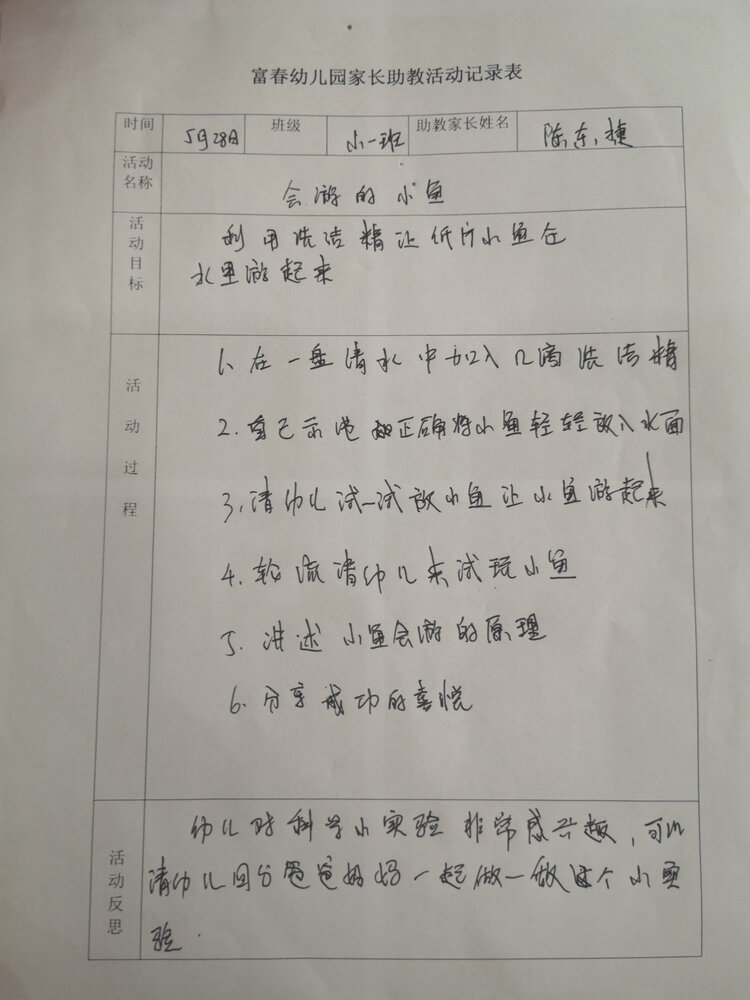 富春幼儿园家长助教活动记录表
时间 5月28日 班级 小一班 助教家长姓名 陈东捷
活动名称 会游的小鱼
活动目标 利用洗洁精让纸片小鱼在
水里游起来
活动过程
1、在一盘清水中加入几滴洗洁精
2、自己示范 正确将小鱼轻轻放入水面
3、请幼儿试一试放小鱼让小鱼游起来
4、轮流请幼儿来试玩小鱼
5、讲述小鱼会游的原理
6、分享成功的喜悦
活动反思
幼儿对科学小实验非常感兴趣，可以
请幼儿回去爸爸妈妈一起做一做这个小实
验.